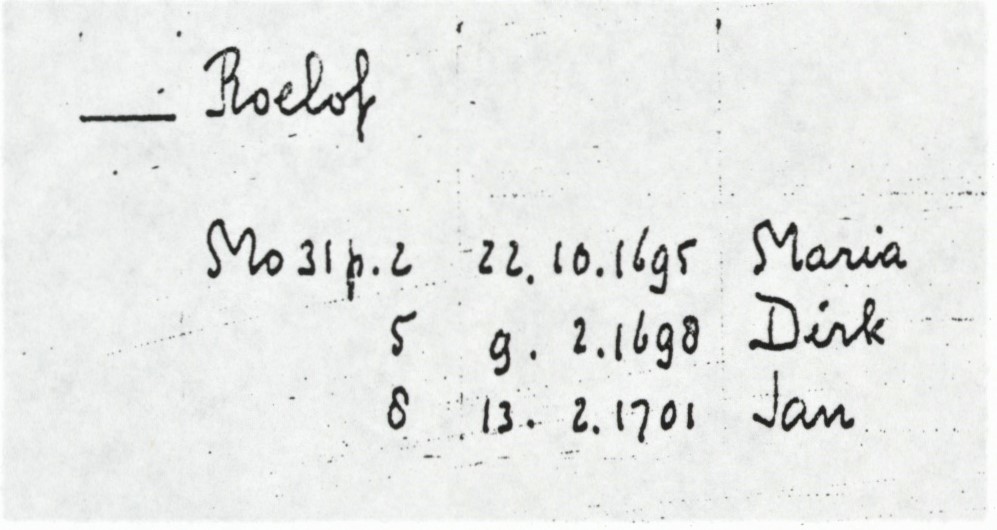 — Roelof
Mo 31 p. 2 22. 10. 1695 Maria
5 9. 2. 1698 Dirk
8 13. 2. 1701 Jan